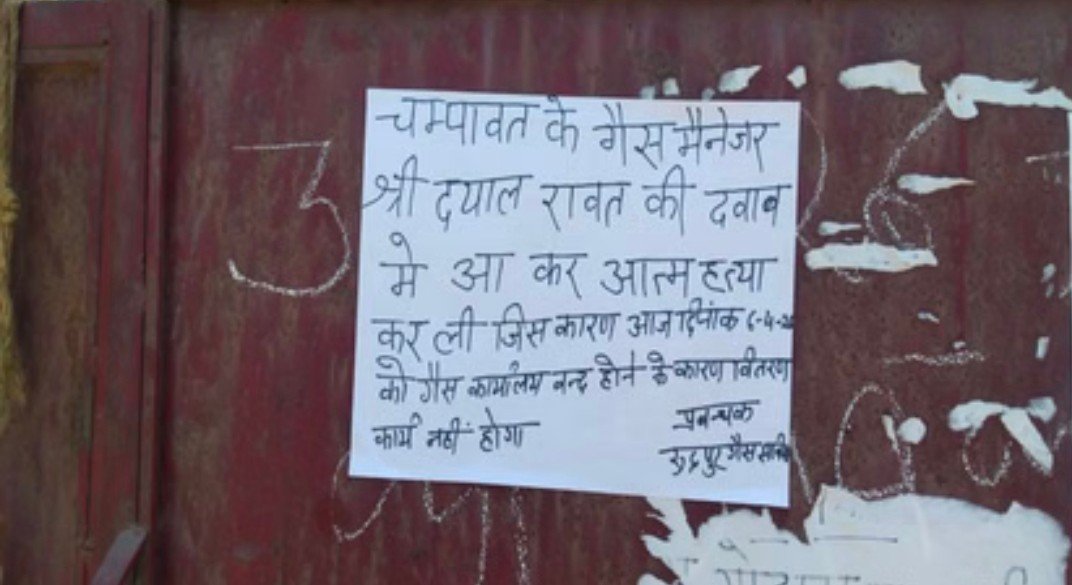 चम्पावत के गैस मैनेजर
श्री दयाल रावत की दवाव
मे आ कर आत्म हत्या
कर ली जिस कारण आज दिनांक 6-4-
को गैस कार्यालय बन्द होने के कारण वितरण
कार्य नहीं होगा
प्रबन्धक
रुद्रपुर गैस सर्विस
3